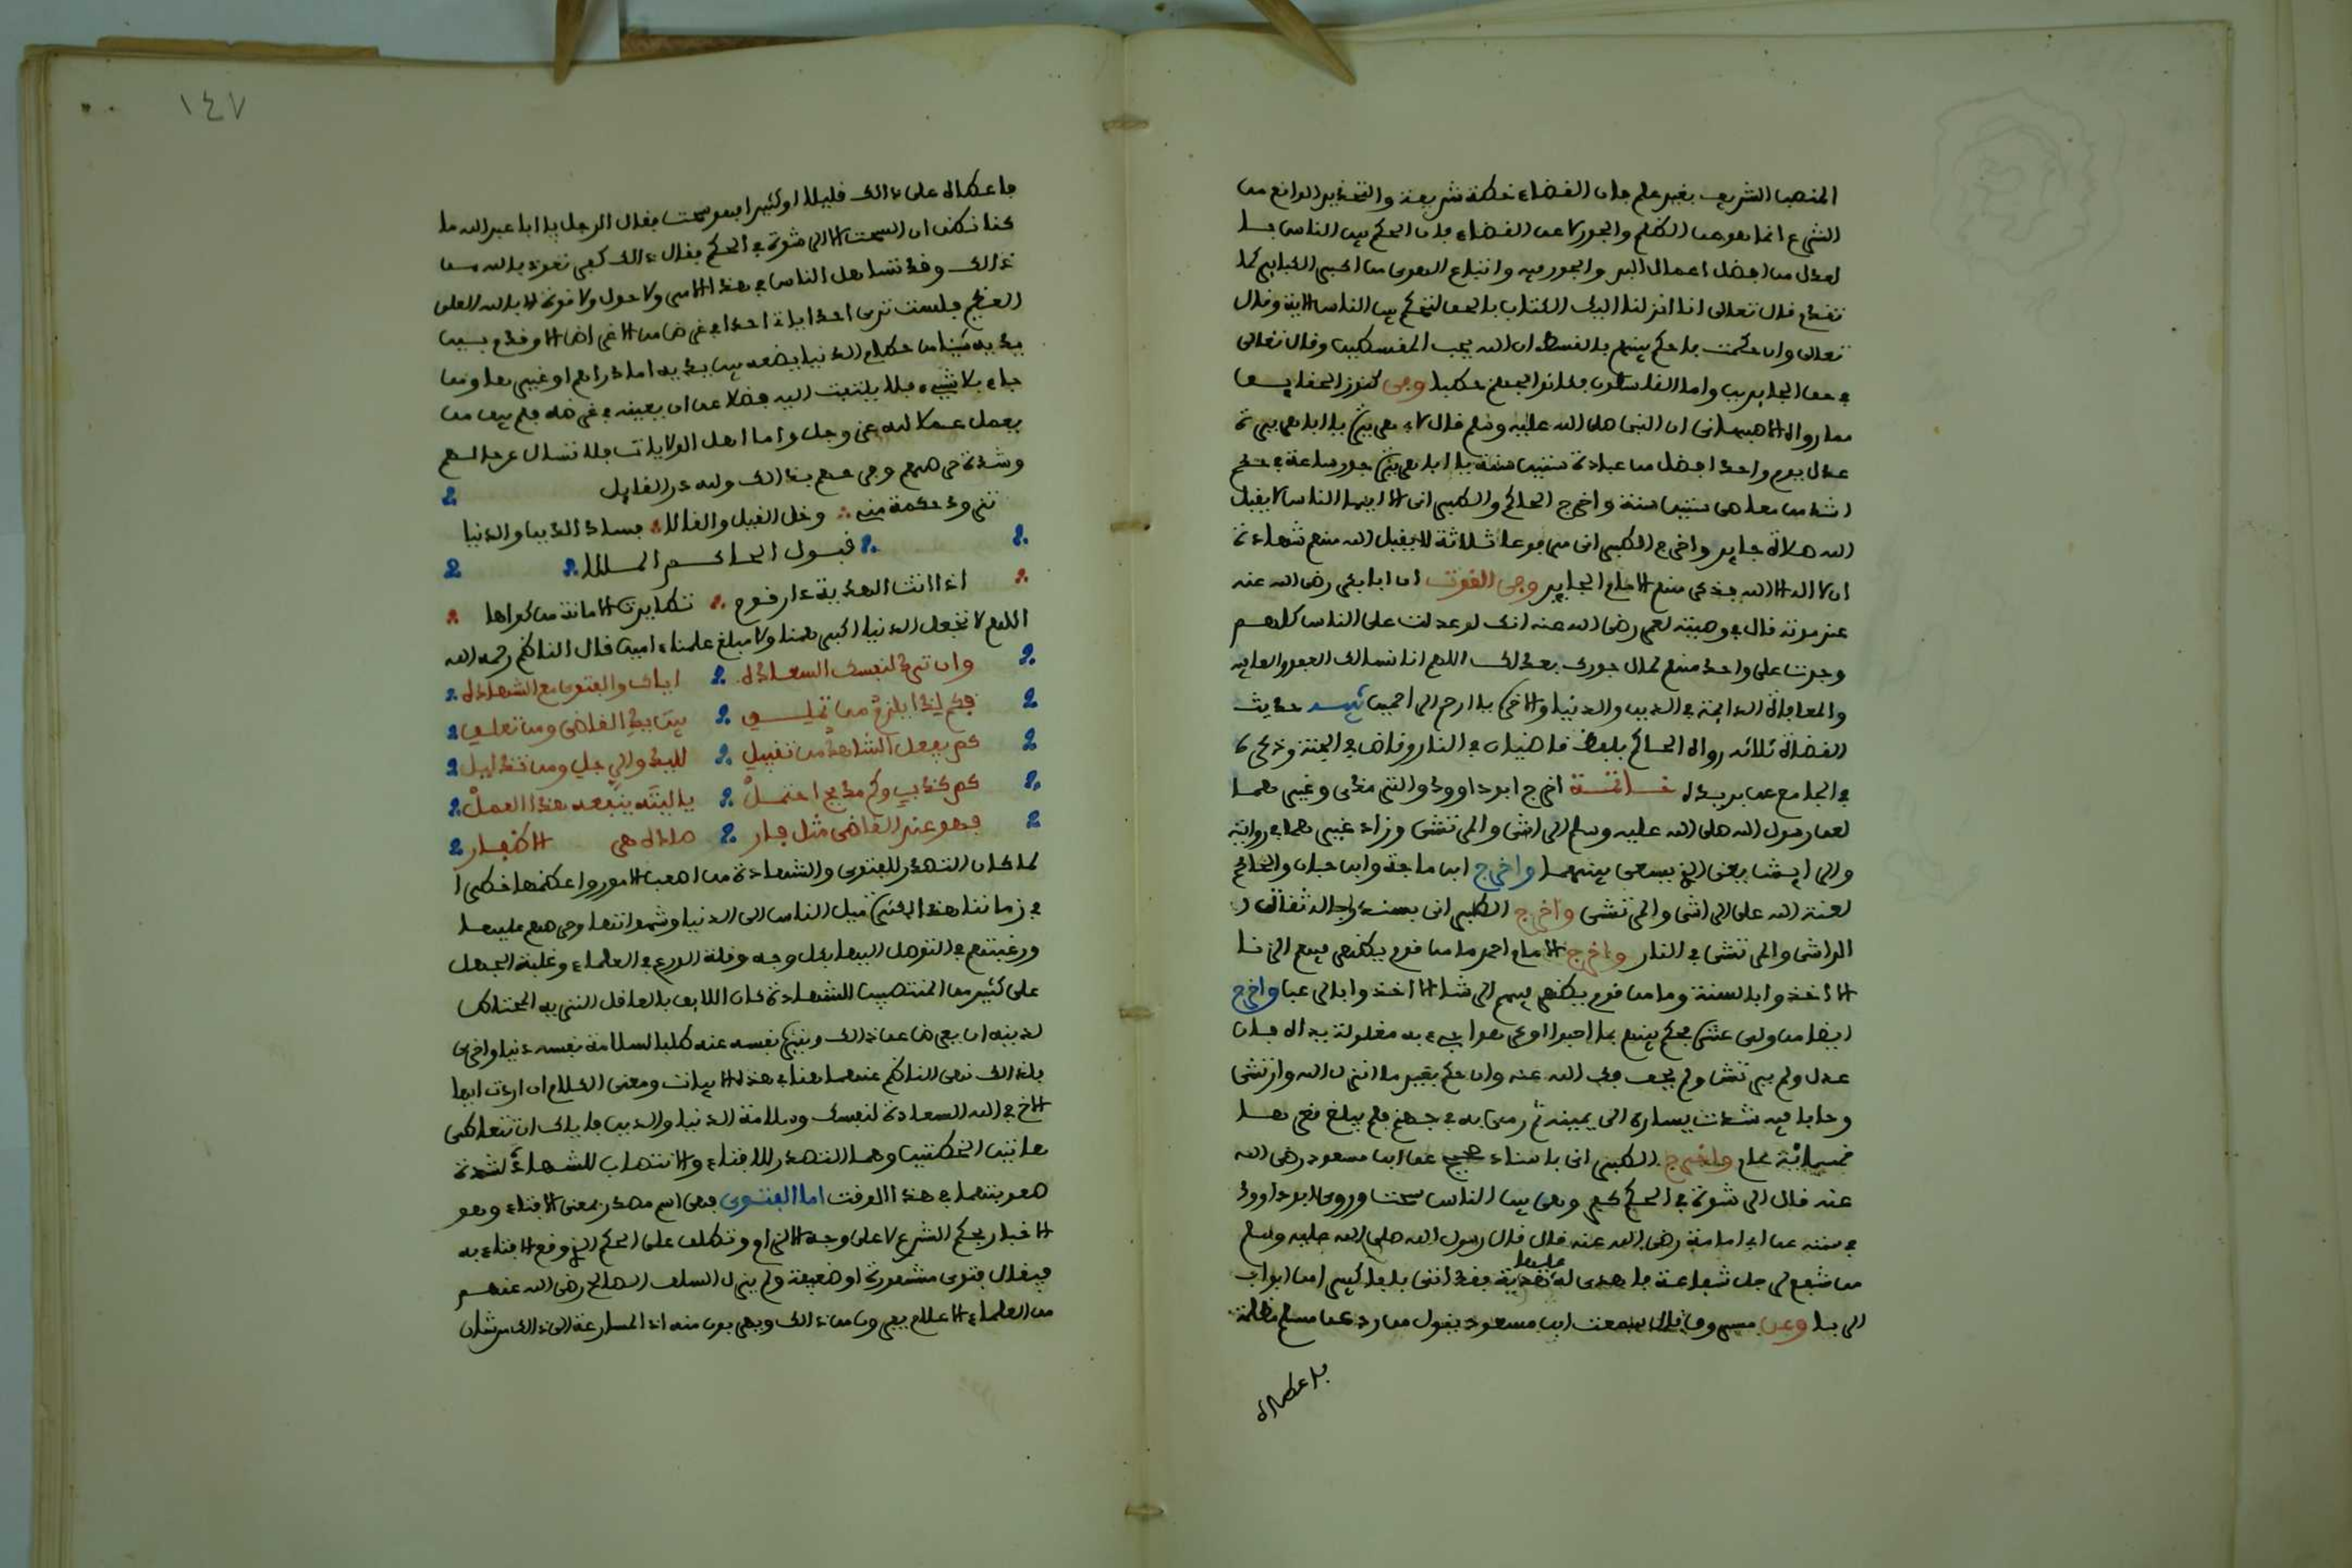 المنصب الشريف بغير علم فان القضاء خطة شريفة والتحذير الواقع من
الشرع انما هو عن الظلم والجور لا عن القضاء فان الحكم بين الناس بالـ
لعدل من افضل اعمال البر والجور فيه واتباع الهوى من اكبر الكبائر كما
تقدم قال تعالى انا انزلنا اليك الكتاب بالحق لتحكم بين الناس الاية وقال
تعالى وان حكمت فاحكم بينهم بالقسط ان الله يحب المقسطين وقال تعالى
في حق الجايرين واما القاسطون فكانوا لجهنم حطبا وفي كنوز الحقايق
مما رواه الاصبهاني ان النبي صلى الله عليه وسلم قال لابي هريرة يا ابا هريرة
عدل يوم واحد افضل من عبادة ستين سنة يا ابا هريرة جور ساعة في حكم
اشد من معاصي ستين سنة واخرج الحاكم والطبراني الا ايها الناس لا يقبل
الله صلاة جاير واخرج الطبراني مرفوعا ثلاثة لا يقبل الله منهم شهادة
ان لا اله الا الله فذكر منهم الامام الجاير وفي القوت ان ابا بكر رضي الله عنه
عند موته قال في وصيته لعمر رضي الله عنه انك لو عدلت على الناس كلهم
وجرت على واحد منهم لمال جورك بعدلك اللهم انا نسالك العفو والعافية
والمعافاة الدايمة في الدين والدنيا والاخرة يا ارحم الراحمين تنبيه حديث
القضاة ثلاثة رواه الحاكم بلفظ قاضيان في النار وقاض في الجنة وذكره
في الجامع عن بريدة خاتمة اخرج ابو داوود والترمذي وغيرهما
لعن رسول الله صلى الله عليه وسلم الراشي والمرتشي وزاد غيرهما في رواية
والرايش يعني الذي يسعى بينهما واخرج ابن ماجة وابن حبان والحاكم
لعنة الله على الراشي والمرتشي واخرج الطبراني بسند رجاله ثقات
الراشي والمرتشي في النار واخرج الامام احمد ما من قوم يظهر فيهم الزنا
الا اخذوا بالسنة وما من قوم يظهر فيهم الرشا الا اخذوا بالرعب واخرج
ايضا من ولي عشرة فحكم بينهم بما احبوا او كرهوا جيء به مغلولة يداه فان
عدل ولم يرتش ولم يحف فك الله عنه وان حكم بغير ما انزل الله وارتشى
وحابا فيه شدت يساره الى يمينه ثم رمي به في جهنم فلم يبلغ قعرها
خمسمائة عام واخرج الطبراني باسناد صحيح عن ابن مسعود رضي الله
عنه قال الرشوة في الحكم كفر وهي بين الناس سحت وروى ابو داوود
في سننه عن ابي امامة رضي الله عنه قال قال رسول الله صلى الله عليه وسلم
من شفع لرجل شفاعة فاهدى له عليها هدية فقد اتى بابا كبيرا من ابواب
الربا وعن مسروق قال سمعت ابن مسعود يقول من رد عن مسلم مظلمة
فاعطاه
١٤٧
فاعطاه على ذالك قليلا او كثيرا فهو سحت فقال الرجل يا ابا عبد الله ما
كنا نظن ان السحت الا الرشوة في الحكم فقال ذالك كفر نعوذ بالله من
ذالك وقد تساهل الناس في هذا الامر ولا حول ولا قوة الا بالله العلي
العظيم فلست ترى احدا ياتي احدا في غرض من الاغراض الا وقدم بين
يديه شيئا من حطام الدنيا يضعه بين يديه اما دراهم او غيرها ومن
جاء بلا شيء فلا يلتفت اليه فضلا عن ان يعينه في غرضه فلم يبق من
يعمل عملا لله عز وجل واما اهل الولايات فلا تسال عن حالهم
وشدة حرصهم وفرحهم بذالك ولله در القايل
تزود حكمة مني وخل القيل والقالا فساد الدين والدنيا
قبول الحاكم المالا
اذا اتت الهدية دار قوم تطايرت الامانة من كواها
اللهم لا تجعل الدنيا اكبر همنا ولا مبلغ علمنا امين قال الناظم رحمه الله
وان ترد لنفسك السعاده اياك والفتوى مع الشهاده
كم يفعل الشاهد من تقبيل لليد والرجل ومن تذليل
كم كذب وكم مديح احتمل يا ليته ينفعه هذا العمل
فهو عند القاضي مثل فار
لما كان التصدر للفتوى والشهادة من اصعب الامور واعظمها خطرا
في زماننا هذا لكثرة ميل الناس الى الدنيا وشهواتها وحرصهم عليها
ورغبتهم في التوصل اليها بكل وجه وقلة الورع في العلماء وغلبة الجهل
على كثير من المنتصبين للشهادة كان اللايق بالعاقل النزيه المحتاط
لدينه ان يعرض عن ذالك وينزه نفسه عنه طلبا لسلامة نفسه دنيا واخرى
فلذالك نهى الناظم عنهما هنا في هذه الابيات ومعنى الكلام ان اردت ايها
الاخ في الله السعادة لنفسك وسلامة الدنيا والدين فاياك ان تتعاطى
هاتين الخطتين وهما التصدر للافتاء والانتصاب للشهادة لشدة
صعوبتهما في هذا الوقت اما الفتوى فهي اسم مصدر بمعنى الافتاء وهو
الاخبار بحكم الشرع لا على وجه الالزام وتطلق على الحكم الذي وقع الافتاء به
فيقال فتوى مشهورة او ضعيفة ولم يزل السلف الصالح رضي الله عنهم
من العلماء الاعلام يفرون من ذالك ويهربون منه اذ المسارعة الى ذالك من شان